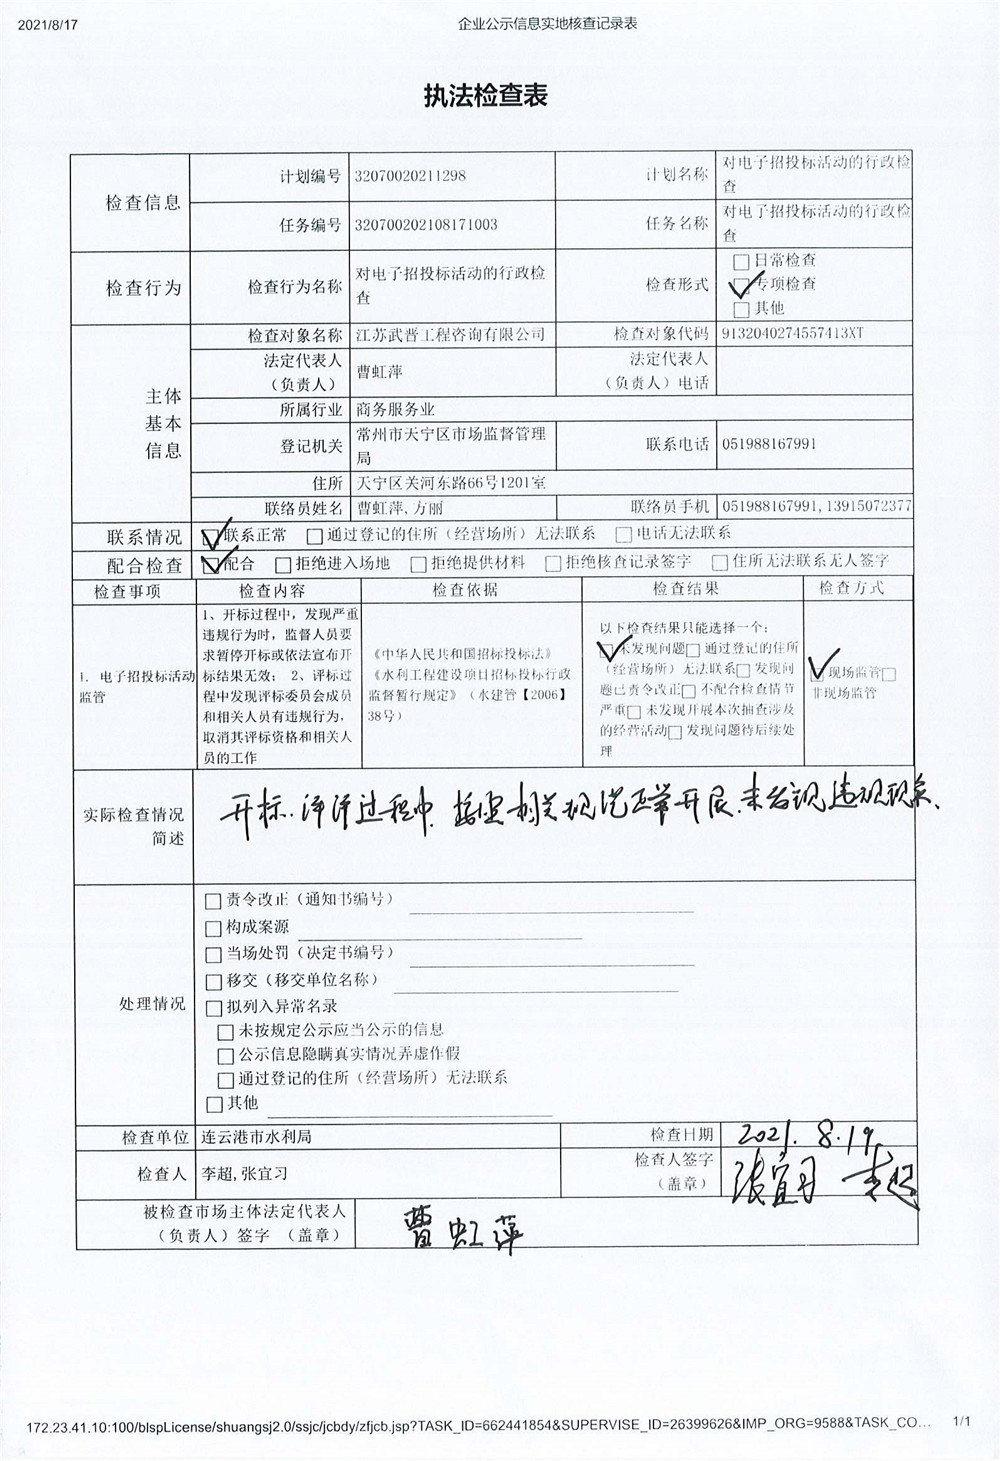 2021/8/17 企业公示信息实地核查记录表
执法检查表
检查信息 计划编号 32070020211298 计划名称 对电子招投标活动的行政检
查
任务编号 320700202108171003 任务名称 对电子招投标活动的行政检
查
检查行为 检查行为名称 对电子招投标活动的行政检
查
检查形式 □日常检查
□专项检查
□其他
主体
基本
信息
检查对象名称 江苏武晋工程咨询有限公司 检查对象代码 9132040274557413XT
法定代表人
（负责人） 曹虹萍 法定代表人
（负责人）电话
所属行业 商务服务业
登记机关 常州市天宁区市场监督管理
局 联系电话 051988167991
住所 天宁区关河东路66号1201室
联络员姓名 曹虹萍,方丽 联络员手机 051988167991,13915072377
联系情况 □联系正常 □通过登记的住所（经营场所）无法联系 □电话无法联系
配合检查 □配合 □拒绝进入场地 □拒绝提供材料 □拒绝核查记录签字 □住所无法联系无人签字
检查事项 检查内容 检查依据 检查结果 检查方式
1. 电子招投标活动
监管
1、开标过程中，发现严重
违规行为时，监督人员要
求暂停开标或依法宣布开
标结果无效； 2、评标过
程中发现评标委员会成员
和相关人员有违规行为，
取消其评标资格和相关人
员的工作
《中华人民共和国招标投标法》
《水利工程建设项目招标投标行政
监督暂行规定》（水建管【2006】
38号）
以下检查结果只能选择一个：
□未发现问题□通过登记的住所
（经营场所）无法联系□发现问
题已责令改正□不配合检查情节
严重□未发现开展本次抽查涉及
的经营活动□发现问题待后续处
理
□现场监管□
非现场监管
实际检查情况
简述
开标.评评过程中 按照相关规范正常开展.未发现违规现象.
处理情况
□责令改正（通知书编号）
□构成案源
□当场处罚（决定书编号）
□移交（移交单位名称）
□拟列入异常名录
□未按规定公示应当公示的信息
□公示信息隐瞒真实情况弄虚作假
□通过登记的住所（经营场所）无法联系
□其他
检查单位 连云港市水利局 检查日期 2021.8.19
检查人 李超,张宜习 检查人签字
（盖章） 张宜习 李超
被检查市场主体法定代表人
（负责人）签字 （盖章） 曹虹萍
172.23.41.10:100/blspLicense/shuangsj2.0/ssjc/jcbdy/zfjcb.jsp?TASK_ID=662441854&SUPERVISE_ID=26399626&IMP_ORG=9588&TASK_CO… 1/1